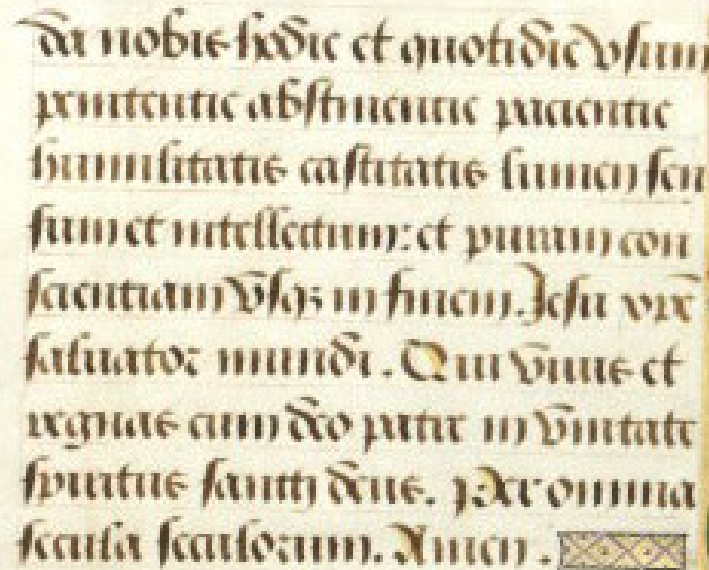 da nobis hodie et quotidie vsum
penitentie abstinentie pacientie
humilitatis castitatis lumen sen
sum et intellectum: et puram con
scientiam vsqz in finem. Jesu xpe
saluator mundi. Qui viuis et
regnas cum deo patre in vnitate
spiritus sancti deus. per omnia
secula seculorum. Amen.